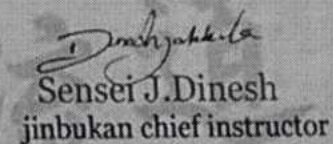 Sensei J.Dinesh
jinbukan chief instructor